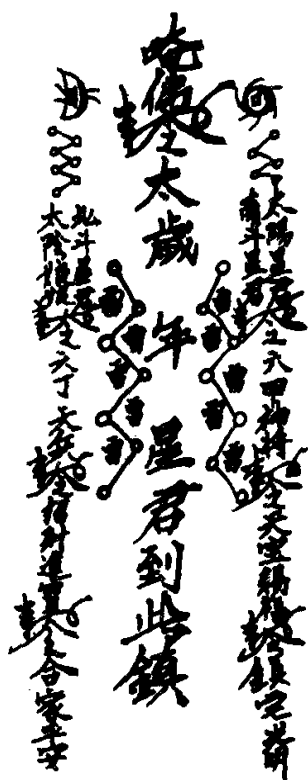 太陽星君
南斗星君
六甲神將
天官賜福
鎮宅光明
唵佛
太歲年星君到此鎮
北斗星君
太陰娘娘
六丁天兵
招財進寶
合家平安